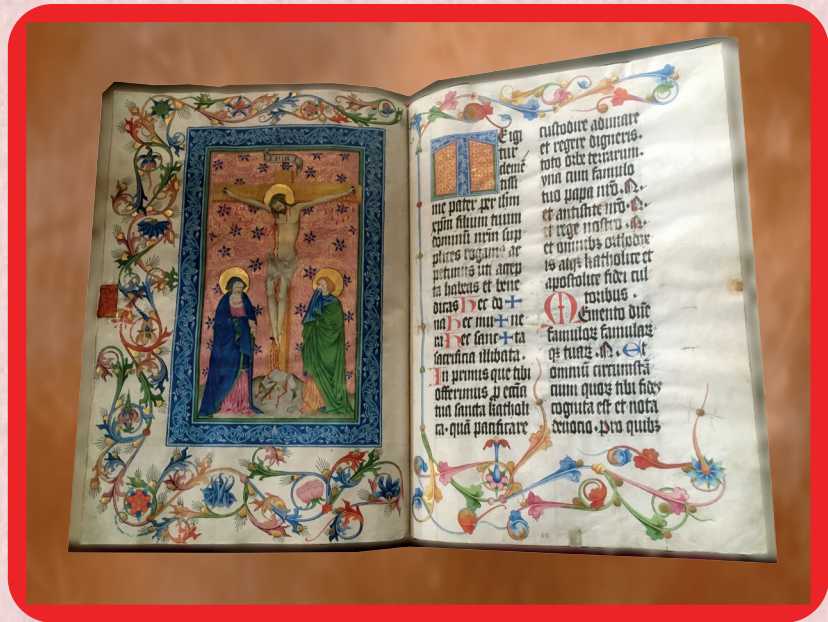 T E igi
tur
cleme
tissi
me pater per ihm
xpm filium tuum
dominū nrm sup
plices rogamꝰ ac
petimus uti accep
ta habeas et bene
dicas hec do + 
na hec mu + ne
ra hec sanc + ta
sacrificia illibata .
In primis que tibi
offerimus p eccia
tua sancta katholi
ca · quā pacificare
custodire adunare
et regere digneris .
toto orbe terrarum .
vna cum famulo
tuo papa nr̄o · N ·
et antistite nr̄o · N ·
et rege nostro · N ·
et omnibꝫ orthodox
is atqꝫ katholice et
apostolice fidei cul
toribus ·
Memento dn̄e
famulorꝫ famularꝫ
qꝫ tuarꝫ · N · Et
omniū circumstā
cium quorꝫ tibi fides
cognita est et nota
deuocio · Pro quibꝫ